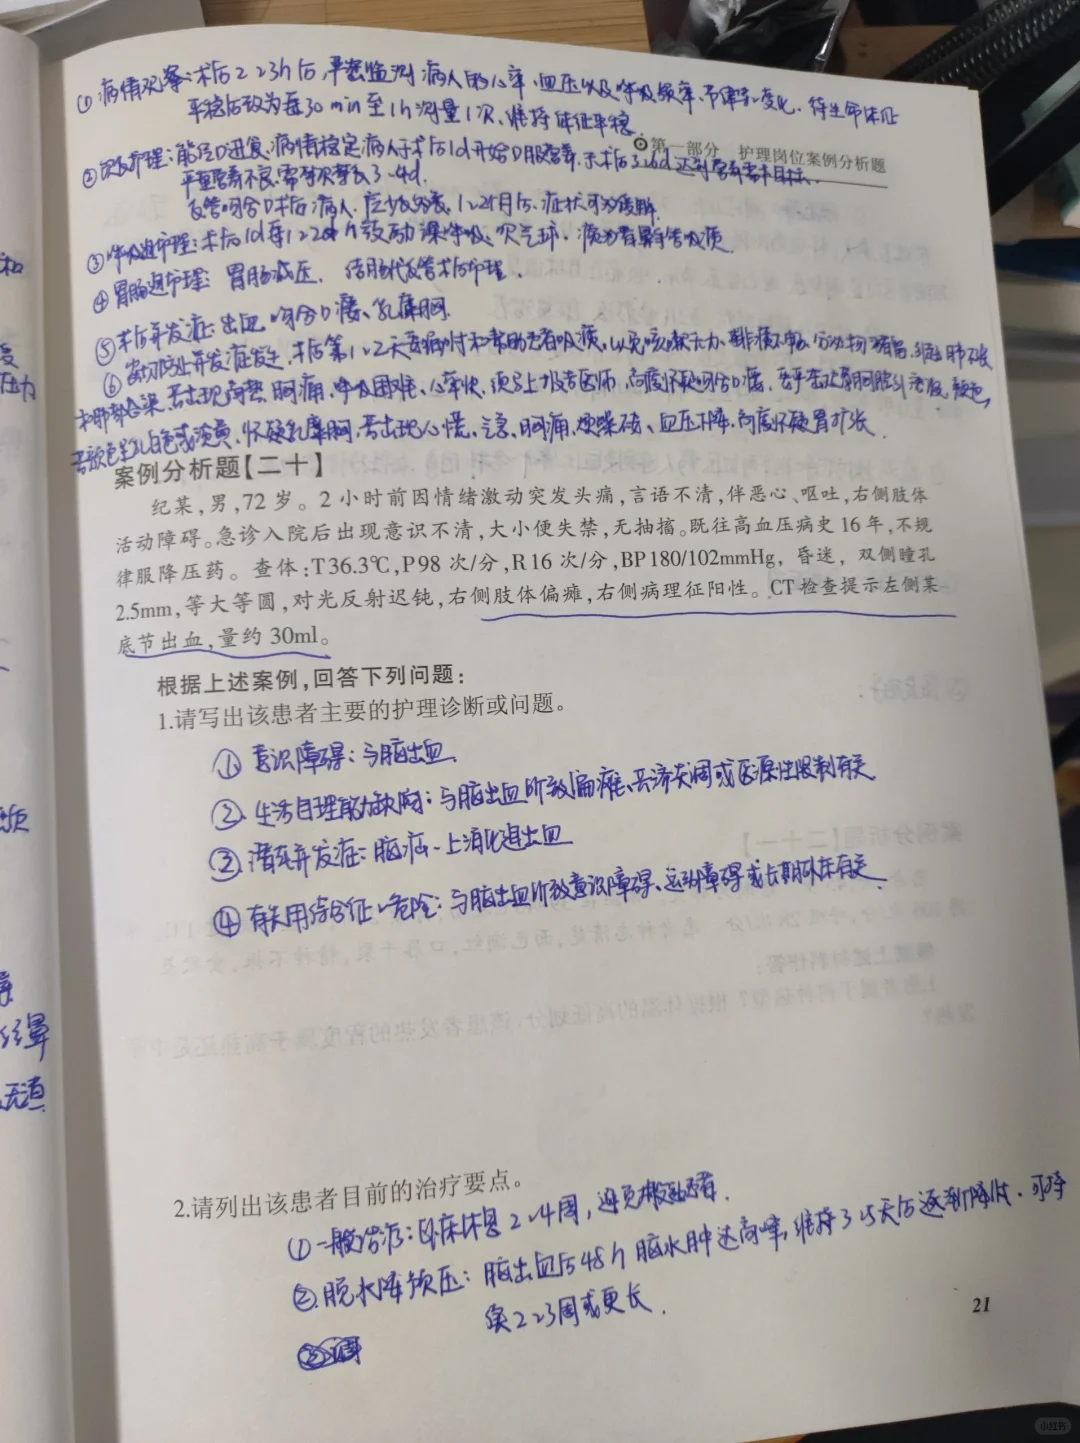 ①病情观察:术后2~3h后,严密监测病人的心率、血压以及呼吸频率、节律等变化,待生命体征
平稳后改为每30min至1h测量1次,维持体征平稳.
第一部分 护理岗位案例分析题
②饮食护理:能经口进食、病情稳定病人于术后1d开始口服营养,于术后3~6d达到营养需求目标.
严重营养不良,需等待3~4d.
反管吻合口术后病人,应少食多餐,1~2个月后,症状可缓解.
③呼吸道护理:术后1d每1~2h鼓励深呼吸、吹气球、
④胃肠道护理:胃肠减压、结肠代食管术后护理.
⑤术后并发症:出血、吻合口瘘、乳糜胸.
⑥密切防止并发症发生,术后第1~2天 和帮助患者吸痰,以免咳嗽无力、排痰不畅、分泌物潴留,引起肺不张
和肺部感染,若出现高热、胸痛、呼吸困难、心率快,须马上报告医师,高度怀疑吻合口瘘,
若颜色呈乳白色或淡黄,怀疑乳糜胸,若出现心慌、气急、胸痛、烦躁、血压下降,高度怀疑胃扩张.
案例分析题【二十】
纪某,男,72岁。2小时前因情绪激动突发头痛,言语不清,伴恶心、呕吐,右侧肢体
活动障碍。急诊入院后出现意识不清,大小便失禁,无抽搐。既往高血压病史16年,不规
律服降压药。查体:T36.3℃,P98次/分,R16次/分,BP180/102mmHg,昏迷,双侧瞳孔
2.5mm,等大等圆,对光反射迟钝,右侧肢体偏瘫,右侧病理征阳性。CT检查提示左侧某
底节出血,量约30ml。
根据上述案例,回答下列问题:
1.请写出该患者主要的护理诊断或问题。
①意识障碍:与脑出血
②生活自理能力缺陷:与脑出血所致偏瘫、共济失调或医源性限制有关
③潜在并发症:脑疝、上消化道出血
④有失用综合征的危险:与脑出血所致意识障碍、运动障碍或长期卧床有关.
2.请列出该患者目前的治疗要点。
①一般治疗:卧床休息2~4周,避免搬动患者.
②脱水降颅压:脑出血后48h脑水肿达高峰,维持3~5天后逐渐降低,可持
续2~3周或更长.
21
小红书